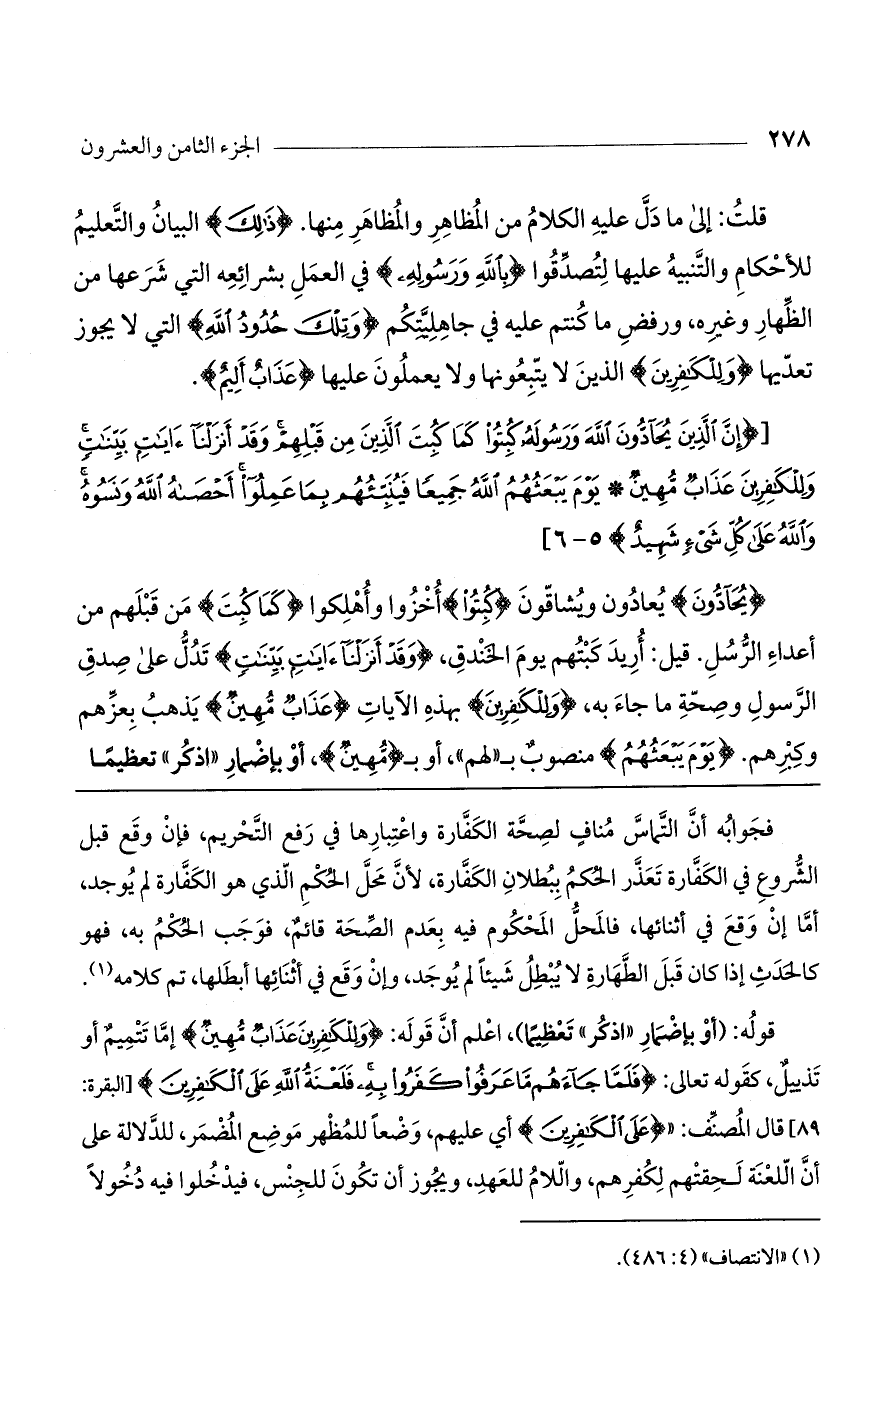 ٢٧٨ الجزء الثامن والعشرون
قلتُ: إلىٰ ما دَلَّ عليهِ الكلامُ من المُظاهِرِ والمُظاهَرِ مِنها. ﴿ذَٰلِكَ﴾ البيانُ والتَّعليمُ
للأحْكامِ والتَّنبيهُ عليها لِتُصدِّقُوا ﴿بِٱللَّهِ وَرَسُولِهِۦ﴾ في العمَلِ بشرائِعِه التي شَرَعها من
الظِّهارِ وغيرِه، ورفضِ ما كُنتم عليه في جاهِليَّتِكُم ﴿وَتِلْكَ حُدُودُ ٱللَّهِ﴾ التي لا يجوز
تعدّيها ﴿وَلِلْكَٰفِرِينَ﴾ الذينَ لا يتّبِعُونها ولا يعملُونَ عليها ﴿عَذَابٌ أَلِيمٌ﴾.
[﴿إِنَّ ٱلَّذِينَ يُحَآدُّونَ ٱللَّهَ وَرَسُولَهُۥ كُبِتُوا۟ كَمَا كُبِتَ ٱلَّذِينَ مِن قَبْلِهِمْ ۚ وَقَدْ أَنزَلْنَآ ءَايَٰتٍۭ بَيِّنَٰتٍ ۚ
وَلِلْكَٰفِرِينَ عَذَابٌ مُّهِينٌ * يَوْمَ يَبْعَثُهُمُ ٱللَّهُ جَمِيعًا فَيُنَبِّئُهُم بِمَا عَمِلُوٓا۟ ۚ أَحْصَىٰهُ ٱللَّهُ وَنَسُوهُ ۚ
وَٱللَّهُ عَلَىٰ كُلِّ شَىْءٍ شَهِيدٌ﴾ ٥ - ٦]
﴿يُحَآدُّونَ﴾ يُعادُون ويُشاقّونَ ﴿كُبِتُوا۟﴾ أُخْزُوا وأُهْلِكوا ﴿كَمَا كُبِتَ﴾ مَن قَبْلَهم من
أعداءِ الرُّسُلِ. قيل: أُرِيدَ كَبْتُهم يومَ الخَندقِ، ﴿وَقَدْ أَنزَلْنَآ ءَايَٰتٍۭ بَيِّنَٰتٍ﴾ تَدُلُّ علىٰ صِدقِ
الرَّسولِ وصِحّةِ ما جاءَ به، ﴿وَلِلْكَٰفِرِينَ﴾ بهذهِ الآياتِ ﴿عَذَابٌ مُّهِينٌ﴾ يَذهبُ بِعزِّهم
وكِبْرِهم. ﴿يَوْمَ يَبْعَثُهُمُ﴾ منصوبٌ بـ«لهم»، أو بـ﴿مُّهِينٌ﴾، أوْ بإضْمارِ «اذكُر» تعظيمًا
فجَوابُه أنَّ التَّماسَّ مُنافٍ لصِحَّة الكفَّارة واعْتِبارِها في رَفع التَّحْريم، فإنْ وقَع قبل
الشُّروعِ في الكَفَّارة تَعَذَّر الحُكمُ بِبُطلانِ الكَفَّارة، لأنَّ مَحَلَّ الحُكْمِ الّذي هو الكَفَّارة لم يُوجد،
أمَّا إنْ وَقعَ في أثنائها، فالمَحلُّ المَحْكُوم فيه بِعَدم الصِّحَة قائمٌ، فوَجَب الحُكْمُ به، فهو
كالحَدَثِ إذا كان قَبلَ الطَّهارةِ لا يُبْطِلُ شَيئاً لم يُوجَد، وإنْ وَقَع في أثْنَائِها أبطَلها، تم كلامه(١).
قولُه: (أوْ بإضْمَارِ «اذكُر» تَعْظِيمًا)، اعْلم أنَّ قَولَه: ﴿وَلِلْكَٰفِرِينَ عَذَابٌ مُّهِينٌ﴾ إمَّا تَتْمِيمٌ أو
تَذييلٌ، كقَوله تعالى: ﴿فَلَمَّا جَآءَهُم مَّا عَرَفُوا۟ كَفَرُوا۟ بِهِۦ ۚ فَلَعْنَةُ ٱللَّهِ عَلَى ٱلْكَٰفِرِينَ﴾ [البقرة:
٨٩] قال المُصنِّف: «﴿عَلَى ٱلْكَٰفِرِينَ﴾ أي عليهم، وَضْعاً للمُظْهر مَوضِع المُضْمَر، للدَّلالة على
أنَّ الّلعْنَة لَـحِقتْهم لِكُفرِهم، والّلامُ للعَهدِ، ويجُوز أن تكُونَ للجِنْس، فيدْخُلوا فيه دُخُولاً
(١) «الانتصاف» (٤: ٤٨٦).